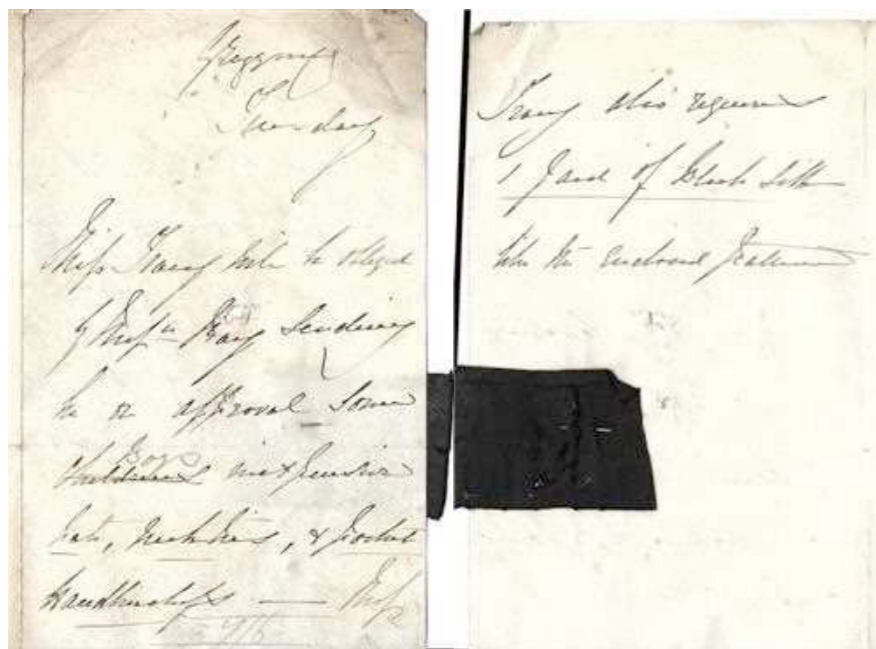 Tuesday
Miss Tracy will be obliged
if Messrs Hay sending
her on approval some
Boys
childrens inexpensive
hats, neckties, & Pocket
handkerchiefs — Miss
Tracy also requires
1 yard of black silk
like the enclosed Pattern